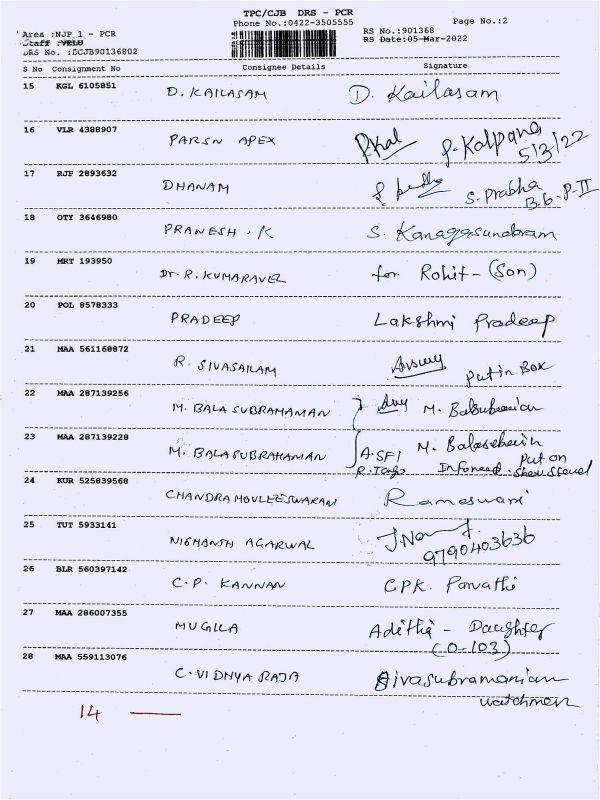 TPC/CJB DRS - PCR
Phone No.:0422-3505555 Page No.:2
Area :NJP 1 - PCR RS No.:901368
Staff :VELU RS Date:05-Mar-2022
DRS No. :DCJB90136802
S No Consignment No Consignee Details Signature
15 KGL 6105851 D. KAILASAM D. Kailasam
16 VLR 4388907 PARSN APEX P.Kal S. Kalpana
5/3/22
17 RJP 2893632 DHANAM S. Prabha
B.6-P-II
18 OTY 3646980 PRANESH . K S. Kanagasundaram
19 MRT 193950 Dr. R. KUMARAVEL for Rohit - (Son)
20 POL 8578333 PRADEEP Lakshmi Pradeep
21 MAA 561168872 R. SIVASAILAM put in Box
22 MAA 287139256 M. BALA SUBRAMAMAN M.
23 MAA 287139228 M. BALASUBRAHAMAN A-SF1 M.
put on
24 KUR 525839568 CHANDRAMOULEESWARAN Rameswari
25 TUT 5933141 NISHANSH AGARWAL
9790403636
26 BLR 560397142 C.P. KANNAN C.P.K. Parvathi
27 MAA 286007355 MUGILA Adithi - Daughter
(O-103)
28 MAA 559113076 C. VIDHYA RAJA Sivasubramanian
watchmen
14 —